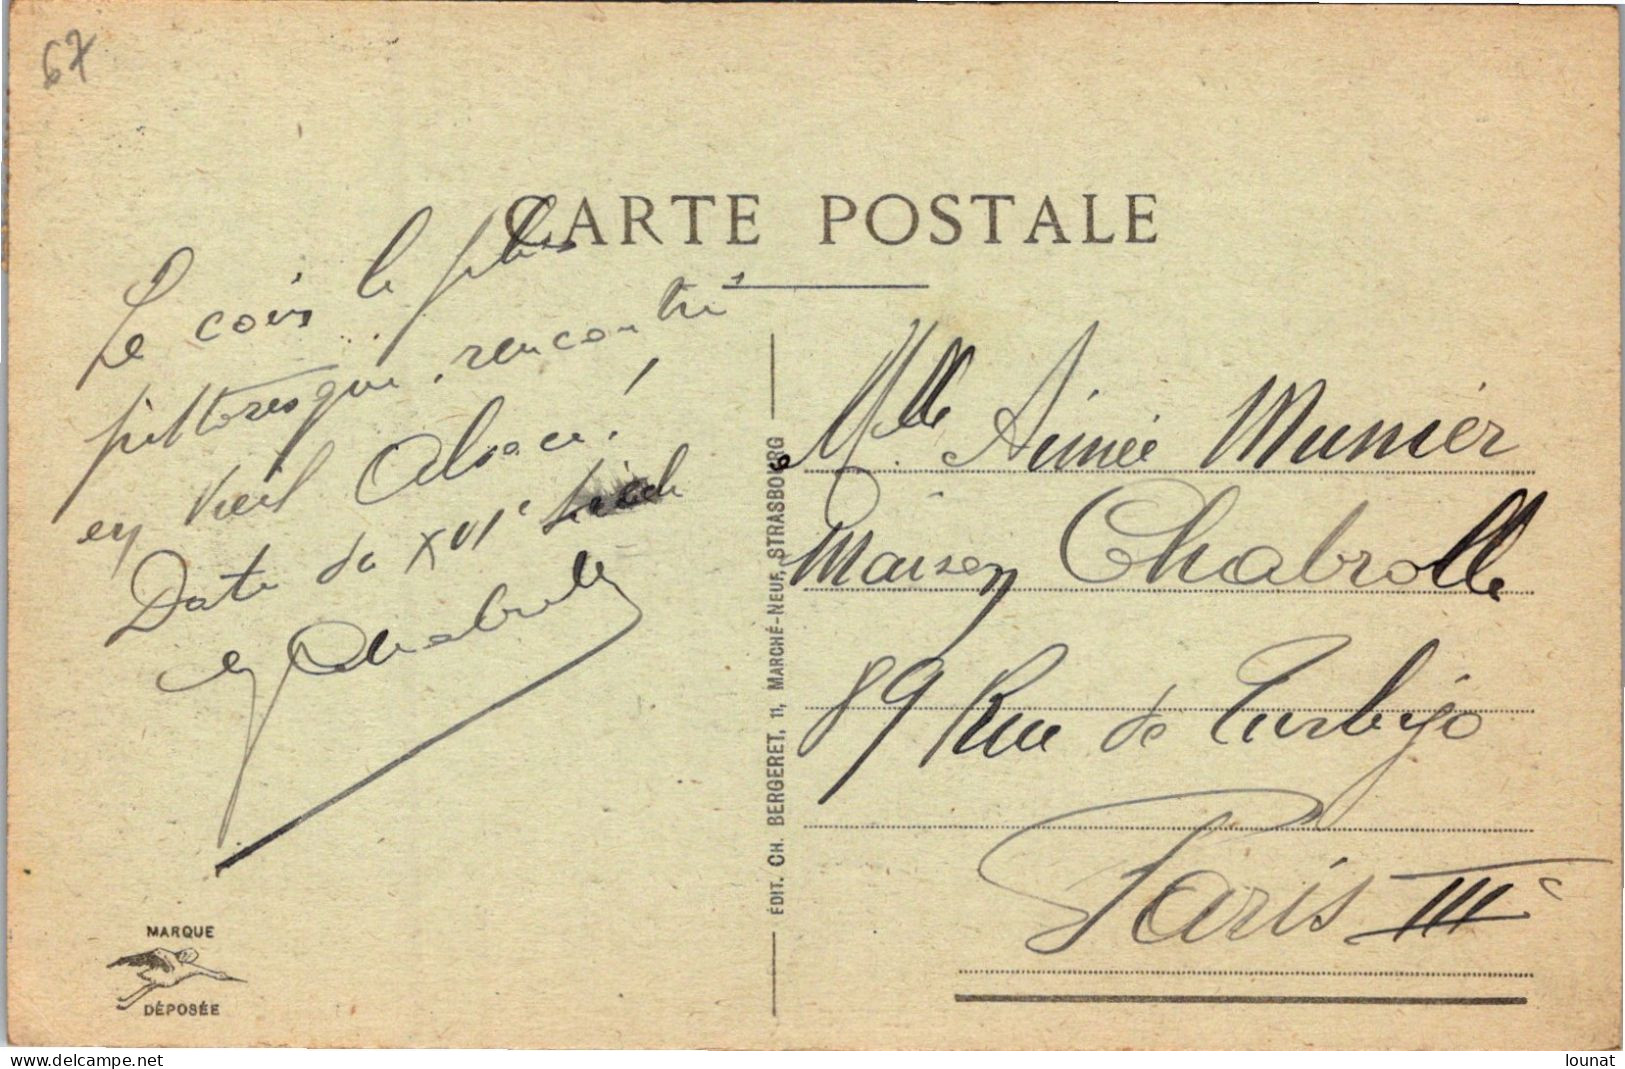 67
CARTE POSTALE
Le coin le plus
pittoresque rencontré
en vieil Alsace!
Date du XVIe siècle
Chabrolle
ÉDIT. CH. BERGERET, 11, MARCHÉ-NEUF, STRASBOURG
Mlle Aimée Munier
Maison Chabrolle
89 Rue de Turbigo
Paris IIIe
MARQUE
DÉPOSÉE
www.delcampe.net
lounat